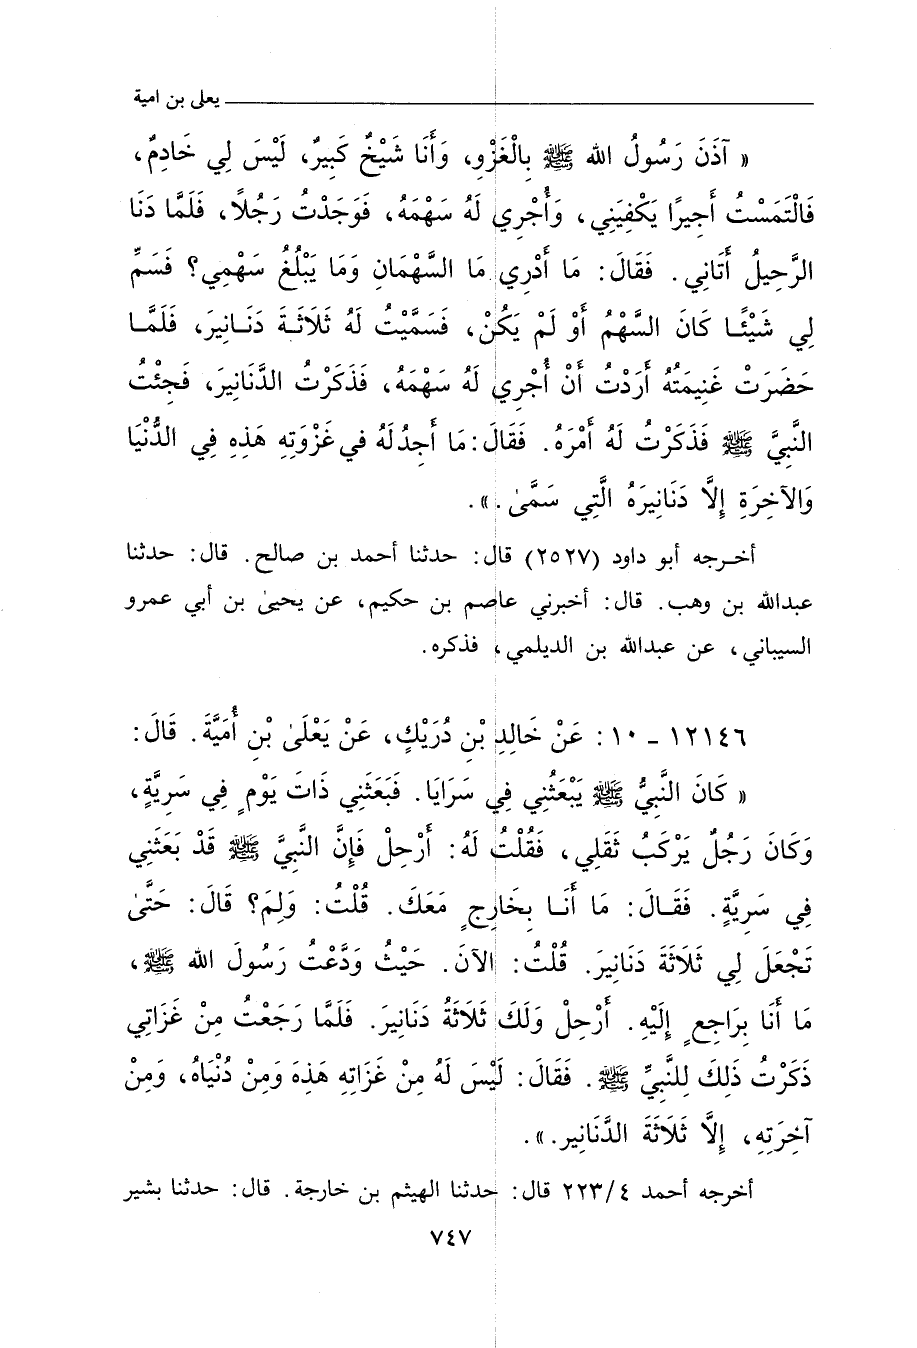 يعلى بن امية
« آذَنَ رَسُولُ الله ﷺ بِالْغَزْوِ، وَأَنَا شَيْخٌ كَبِيرٌ، لَيْسَ لِي خَادِمٌ،
فَالْتَمَسْتُ أَجِيرًا يَكْفِيَنِي، وَأُجْرِي لَهُ سَهْمَهُ، فَوَجَدْتُ رَجُلاً، فَلَمَّا دَنَا
الرَّحِيلُ أَتَانِي. فَقَالَ: مَا أَدْرِي مَا السُّهْمَانِ وَمَا يَبْلُغُ سَهْمِي؟ فَسَمِّ
لِي شَيْئًا كَانَ السَّهْمُ أَوْ لَمْ يَكُنْ، فَسَمَّيْتُ لَهُ ثَلَاثَةَ دَنَانِيرَ، فَلَمَّا
حَضَرَتْ غَنِيمَتُهُ أَرَدْتُ أَنْ أُجْرِيَ لَهُ سَهْمَهُ، فَذَكَرْتُ الدَّنَانِيرَ، فَجِئْتُ
النَّبِيَّ ﷺ فَذَكَرْتُ لَهُ أَمْرَهُ. فَقَالَ: مَا أَجِدُ لَهُ في غَزْوَتِهِ هَذِهِ فِي الدُّنْيَا
وَالآخِرَةِ إِلَّا دَنَانِيرَهُ الَّتِي سَمَّىٰ.».
أخرجه أبو داود (٢٥٢٧) قال: حدثنا أحمد بن صالح. قال: حدثنا
عبدالله بن وهب. قال: أخبرني عاصم بن حكيم، عن يحيىٰ بن أبي عمرو
السيباني، عن عبدالله بن الديلمي، فذكره.
١٢١٤٦ - ١٠: عَنْ خَالِدِ بْنِ دُرَيْكٍ، عَنْ يَعْلَىٰ بْنِ أُمَيَّةَ. قَالَ:
« كَانَ النَّبِيُّ ﷺ يَبْعَثُنِي فِي سَرَايَا. فَبَعَثَنِي ذَاتَ يَوْمٍ فِي سَرِيَّةٍ،
وَكَانَ رَجُلٌ يَرْكَبُ ثَقَلِي، فَقُلْتُ لَهُ: أَرْحِلْ فَإِنَّ النَّبِيَّ ﷺ قَدْ بَعَثَنِي
فِي سَرِيَّةٍ. فَقَالَ: مَا أَنَا بِخَارِجٍ مَعَكَ. قُلْتُ: وَلِمَ؟ قَالَ: حَتَّىٰ
تَجْعَلَ لِي ثَلَاثَةَ دَنَانِيرَ. قُلْتُ: الآنَ. حَيْثُ وَدَّعْتُ رَسُولَ الله ﷺ،
مَا أَنَا بِرَاجِعٍ إِلَيْهِ. أَرْحِلْ وَلَكَ ثَلَاثَةُ دَنَانِيرَ. فَلَمَّا رَجَعْتُ مِنْ غَزَاتِي
ذَكَرْتُ ذَلِكَ لِلنَّبِيِّ ﷺ. فَقَالَ: لَيْسَ لَهُ مِنْ غَزَاتِهِ هَذِهَ وَمِنْ دُنْيَاهُ، وَمِنْ
آخِرَتِهِ، إِلَّا ثَلَاثَةَ الدَّنَانِير.».
أخرجه أحمد ٢٢٣/٤ قال: حدثنا الهيثم بن خارجة. قال: حدثنا بشير
٧٤٧